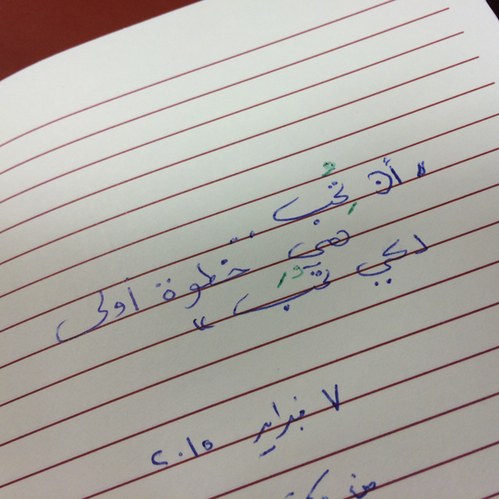 "أن تُحِب
هي .. خطوة أولى
لكي تُحَب"
٧ فبراير ٢٠١٥
من